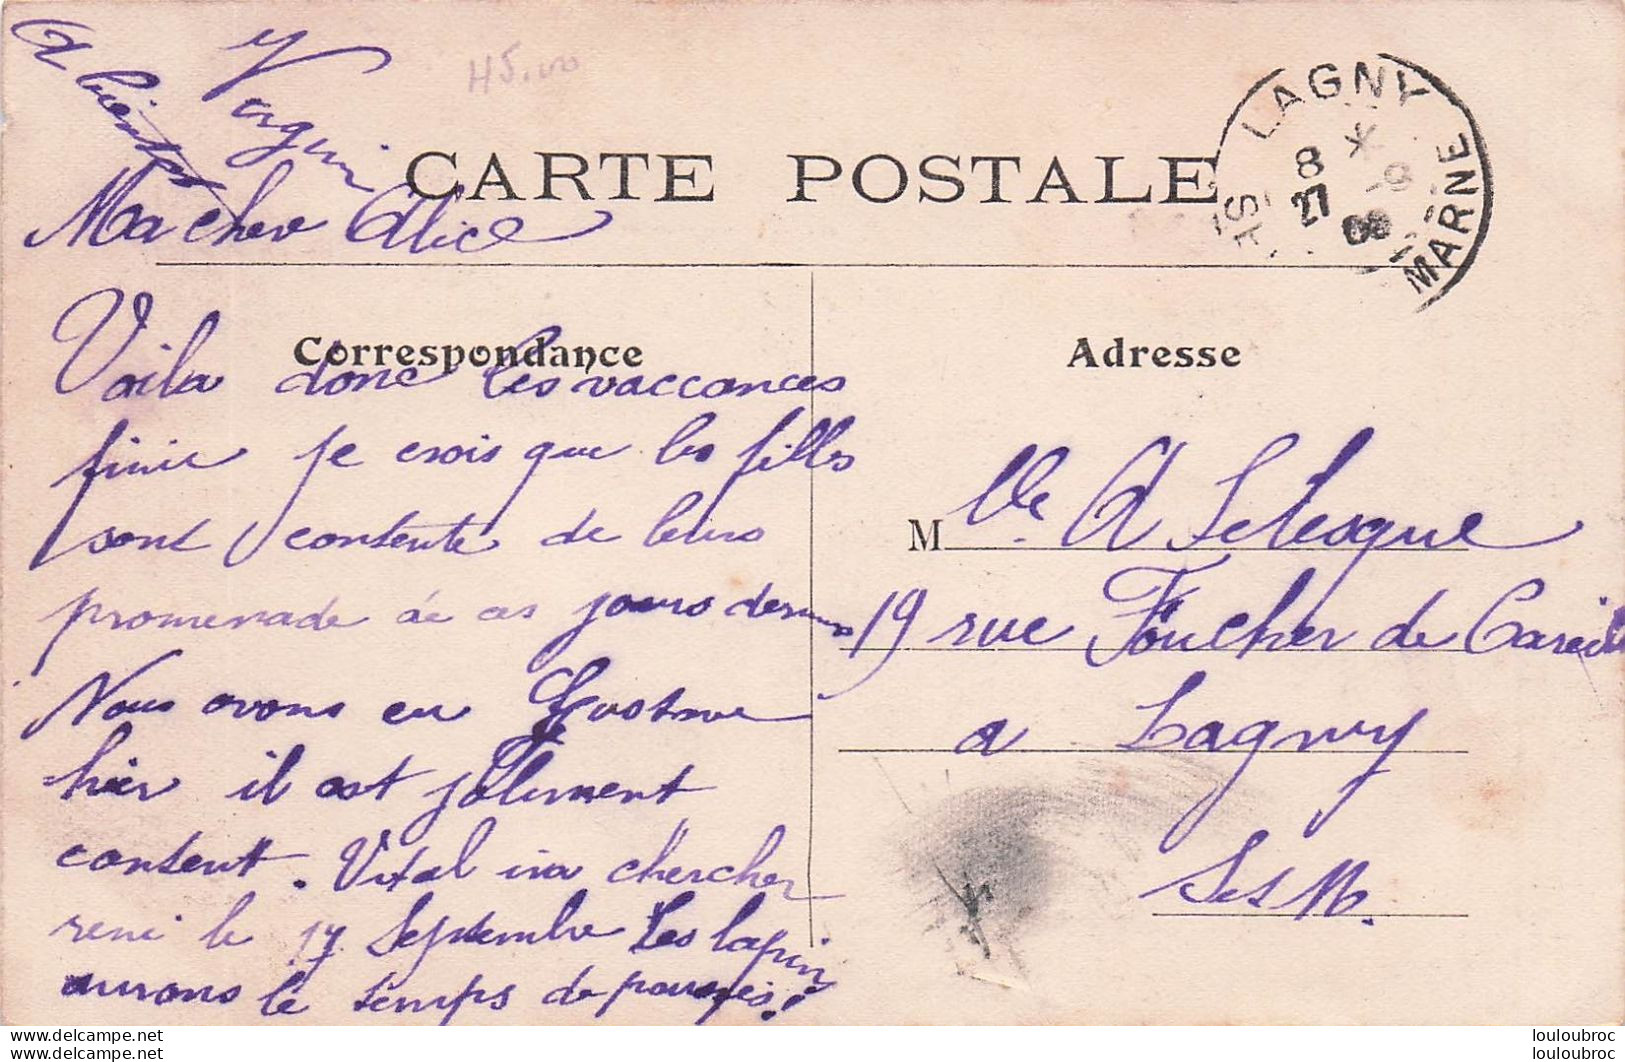 A bientot
45.00
CARTE POSTALE
LAGNY
8
27 -9
08
SET MARNE
Ma chere Alice
Correspondance
Voila donc les vaccances
finie je crois que les filles
sont contente de leurs
promenade de ces jours derniers
Nous avons eu Gustave
hier il est joliment
content. Vital ira chercher
rené le 17 Septembre Les lapin
aurons le temps de pousseés!
Adresse
M lle A Selesque
19 rue Foucher de Careil
a Lagny
S et M.
louloubroc
louloubroc